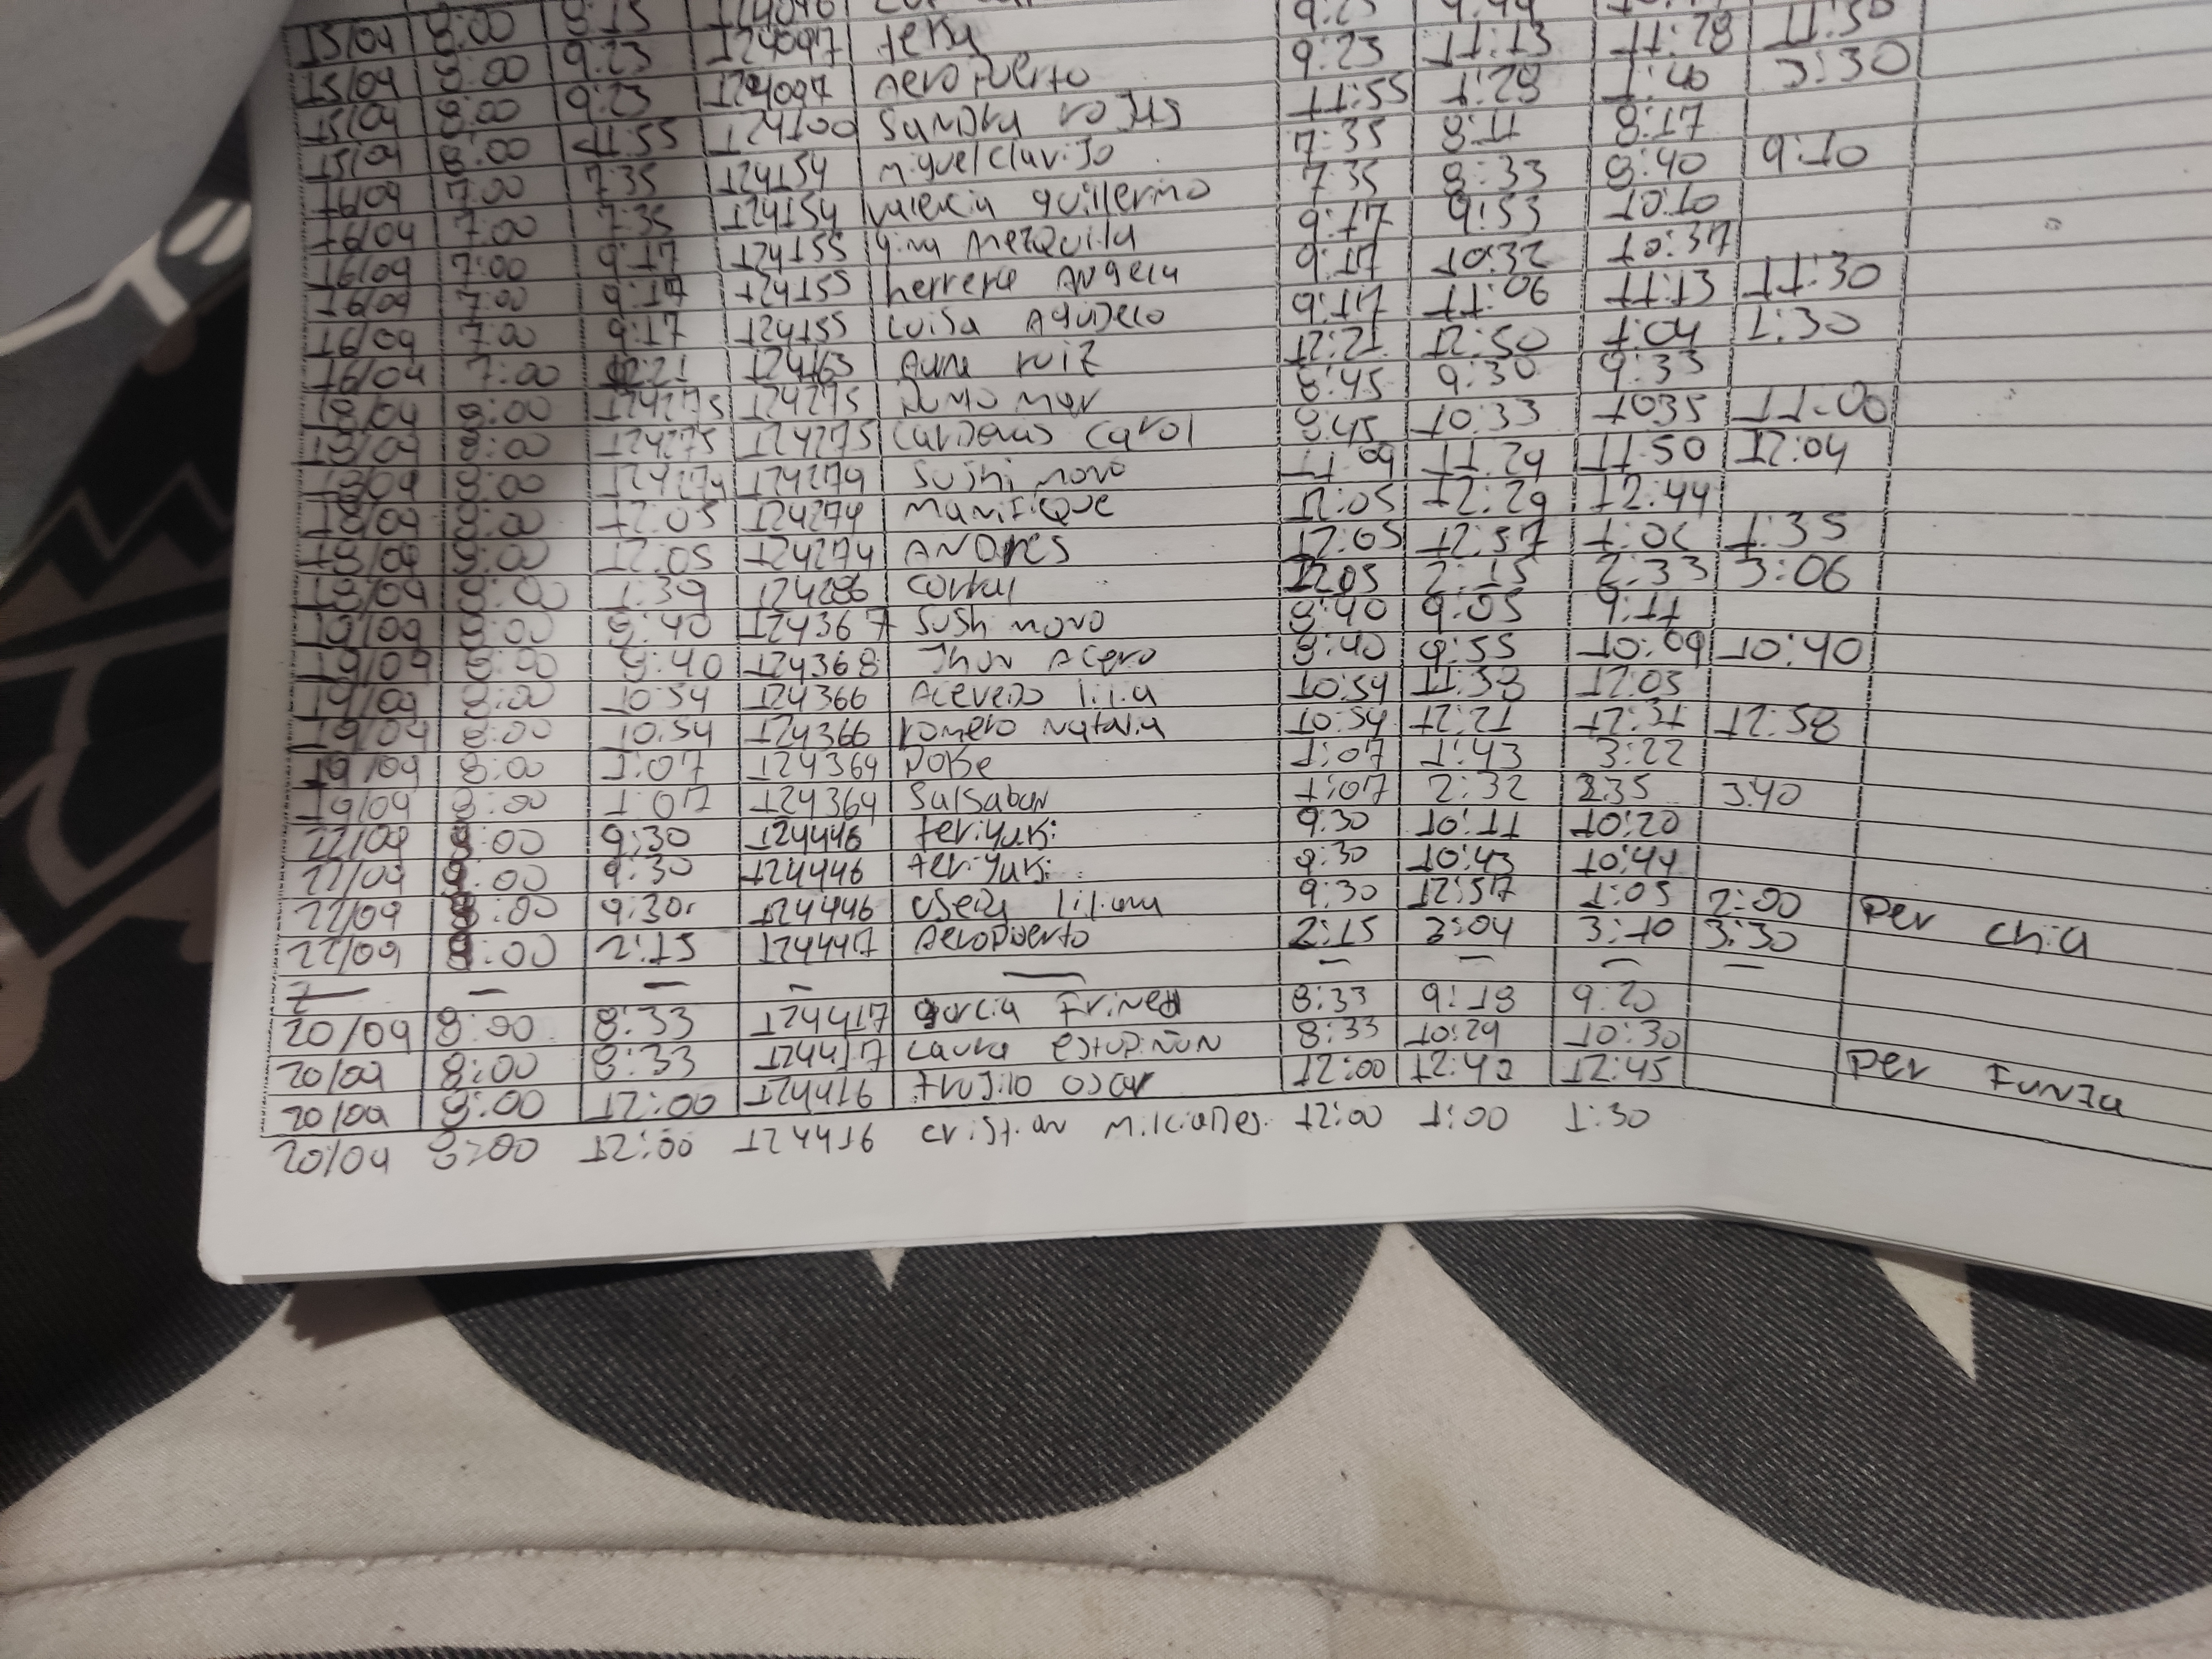 15/04 8:00 8:15 124096
15/04 8:00 9:23 124097 teky 9:23 11:13 11:28 11:50
15/04 8:00 9:23 124097 Aeropuerto 11:55 1:28 1:40 3:30
15/04 8:00 11:55 124100 Sandra rojas 7:35 8:11 8:17
16/04 7:00 7:35 124154 miguel clavijo 7:35 8:33 8:40 9:10
16/04 7:00 7:35 124154 valencia guillermo 9:17 9:53 10:10
16/04 7:00 9:17 124155 gina Amezquita 9:17 10:32 10:37
16/04 7:00 9:17 124155 herrera Angela 9:17 11:06 11:13 11:30
16/04 7:00 9:17 124155 Luisa Agudelo 12:21 12:50 1:04 1:30
16/04 7:00 12:21 124163 Anna ruiz 8:45 9:30 9:33
18/04 8:00 124275 124275 mar 8:45 10:33 1035 11:00
18/04 8:00 124275 124275 Cardenas Carol 11:09 11:24 11:50 12:04
18/04 8:00 124274 124274 Sushi novo 12:05 12:29 12:44
18/04 8:00 12:05 124274 Manifique 12:05 12:57 1:06 1:35
18/04 8:00 12:05 124274 ANDres 1205 2:15 2:33 3:06
18/04 8:00 1:39 124286 Corral 8:40 9:05 9:11
19/04 8:00 8:40 124367 Sush novo 8:40 9:55 10:09 10:40
19/04 8:00 8:40 124368 Jhon Acero 10:54 11:38 12:03
19/04 8:00 10:54 124366 Acevedo lilia 10:54 12:21 12:31 12:58
19/04 8:00 10:54 124366 romero natalia 1:07 1:43 3:22
19/04 8:00 1:07 124364 poke 1:07 2:32 235 340
19/04 8:00 1:07 124364 Salsaban 9:30 10:11 10:20
22/04 8:00 9:30 124446 teriyaki 9:30 10:43 10:44
22/04 8:00 9:30 124446 teriyaki 9:30 12:57 1:05 2:00 Per chia
22/04 8:00 9:30 124446 liliana 2:15 3:04 3:10 3:30
22/04 8:00 2:15 124447 Aeropuerto
— — — — — — — — —
20/04 8:00 8:33 124417 garcia 8:33 9:18 9:20
20/04 8:00 8:33 124417 Laura estupiñan 8:33 10:24 10:30
20/04 8:00 12:00 124416 trujilo oscar 12:00 12:42 12:45 Per Funza
20/04 8:00 12:00 124416 cristian Milciades 12:00 1:00 1:30